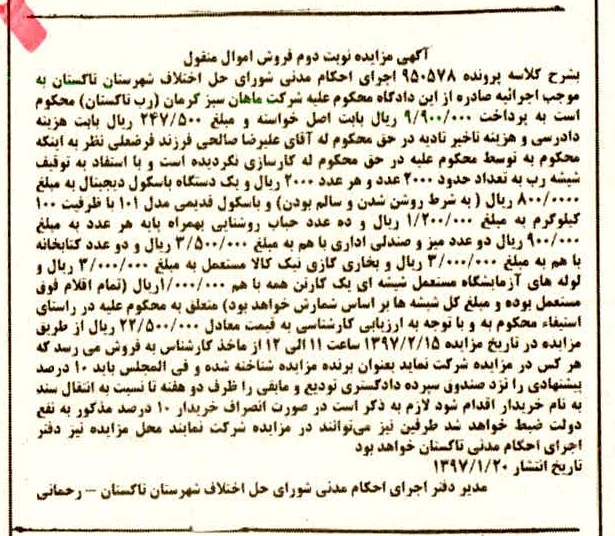 آگهی مزایده نوبت دوم فروش اموال منقول
بشرح کلاسه پرونده ۹۵۰۵۷۸ اجرای احکام مدنی شورای حل اختلاف شهرستان تاکستان به
موجب اجرائیه صادره از این دادگاه محکوم علیه شرکت ماهان سبز کرمان (رب تاکستان) محکوم
است به پرداخت ۹/۹۰۰/۰۰۰ ریال بابت اصل خواسته و مبلغ ۲۴۷/۵۰۰ ریال بابت هزینه
دادرسی و هزینه تاخیر تادیه در حق محکوم له آقای علیرضا صالحی فرزند فرضعلی نظر به اینکه
محکوم به توسط محکوم علیه در حق محکوم له کارسازی نگردیده است و با استفاد به توقیف
شیشه رب به تعداد حدود ۲۰۰۰ عدد و هر عدد ۲۰۰۰ ریال و یک دستگاه باسکول دیجیتال به مبلغ
۸۰۰/۰۰۰۰ ریال ( به شرط روشن شدن و سالم بودن) و باسکول قدیمی مدل ۱۰۱ با ظرفیت ۱۰۰
کیلوگرم به مبلغ ۱/۲۰۰/۰۰۰ ریال و ده عدد حباب روشنایی بهمراه پایه هر عدد به مبلغ
۹۰۰/۰۰۰ ریال دو عدد میز و صندلی اداری با هم به مبلغ ۳/۵۰۰/۰۰۰ ریال و دو عدد کتابخانه
با هم به مبلغ ۳/۰۰۰/۰۰۰ ریال و بخاری گازی نیک کالا مستعمل به مبلغ ۳/۰۰۰/۰۰۰ ریال و
لوله های آزمایشگاه مستعمل شیشه ای یک کارتن همه با هم ۱/۰۰۰/۰۰۰ریال (تمام اقلام فوق
مستعمل بوده و مبلغ کل شیشه ها بر اساس شمارش خواهد بود) متعلق به محکوم علیه در راستای
استیفاء محکوم به و با توجه به ارزیابی کارشناسی به قیمت معادل ۲۲/۵۰۰/۰۰۰ ریال از طریق
مزایده در تاریخ مزایده ۱۳۹۷/۲/۱۵ ساعت ۱۱ الی ۱۲ از ماخذ کارشناس به فروش می رسد که
هر کس در مزایده شرکت نماید بعنوان برنده مزایده شناخته شده و فی المجلس باید ۱۰ درصد
پیشنهادی را نزد صندوق سپرده دادگستری تودیع و مابقی را ظرف دو هفته تا نسبت به انتقال سند
به نام خریدار اقدام شود لازم به ذکر است در صورت انصراف خریدار ۱۰ درصد مذکور به نفع
دولت ضبط خواهد شد طرفین نیز می‌توانند در مزایده شرکت نمایند محل مزایده نیز دفتر
اجرای احکام مدنی تاکستان خواهد بود
تاریخ انتشار ۱۳۹۷/۱/۲۰
مدیر دفتر اجرای احکام مدنی شورای حل اختلاف شهرستان تاکستان – رحمانی